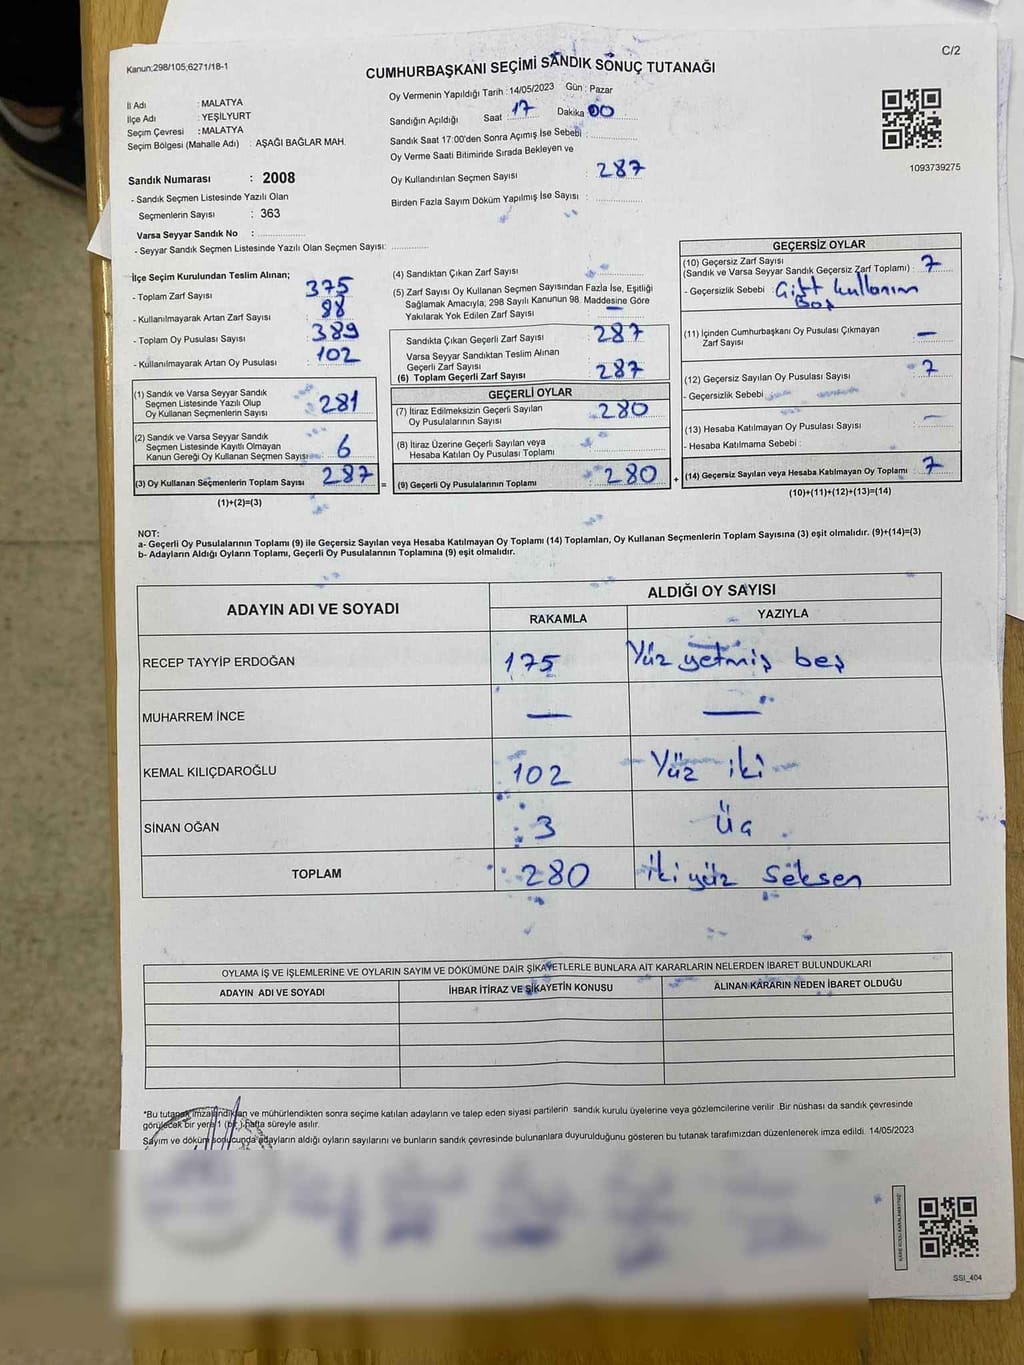 C/2
Kanun:298/105,6271/18-1
CUMHURBAŞKANI SEÇİMİ SANDIK SONUÇ TUTANAĞI
İl Adı : MALATYA
İlçe Adı : YEŞİLYURT
Seçim Çevresi : MALATYA
Seçim Bölgesi (Mahalle Adı) : AŞAĞI BAĞLAR MAH.
Sandık Numarası : 2008
- Sandık Seçmen Listesinde Yazılı Olan
Seçmenlerin Sayısı : 363
Varsa Seyyar Sandık No :
- Seyyar Sandık Seçmen Listesinde Yazılı Olan Seçmen Sayısı:
Oy Vermenin Yapıldığı Tarih : 14/05/2023 Gün : Pazar
Sandığın Açıldığı Saat 17 Dakika 00
Sandık Saat 17:00'den Sonra Açımış İse Sebebi :
Oy Verme Saati Bitiminde Sırada Bekleyen ve
Oy Kullandırılan Seçmen Sayısı : 287
Birden Fazla Sayım Döküm Yapılmış İse Sayısı :
1093739275
İlçe Seçim Kurulundan Teslim Alınan;
- Toplam Zarf Sayısı 375
- Kullanılmayarak Artan Zarf Sayısı 88
- Toplam Oy Pusulası Sayısı 389
- Kullanılmayarak Artan Oy Pusulası 102
(1) Sandık ve Varsa Seyyar Sandık
Seçmen Listesinde Yazılı Olup
Oy Kullanan Seçmenlerin Sayısı 281
(2) Sandık ve Varsa Seyyar Sandık
Seçmen Listesinde Kayıtlı Olmayan
Kanun Gereği Oy Kullanan Seçmen Sayısı 6
(3) Oy Kullanan Seçmenlerin Toplam Sayısı 287 =
(1)+(2)=(3)
(4) Sandıktan Çıkan Zarf Sayısı :
(5) Zarf Sayısı Oy Kullanan Seçmen Sayısından Fazla İse, Eşitliği
Sağlamak Amacıyla; 298 Sayılı Kanunun 98. Maddesine Göre
Yakılarak Yok Edilen Zarf Sayısı : —
Sandıkta Çıkan Geçerli Zarf Sayısı 287
Varsa Seyyar Sandıktan Teslim Alınan
Geçerli Zarf Sayısı
(6) Toplam Geçerli Zarf Sayısı 287
GEÇERLİ OYLAR
(7) İtiraz Edilmeksizin Geçerli Sayılan
Oy Pusulalarının Sayısı : 280
(8) İtiraz Üzerine Geçerli Sayılan veya
Hesaba Katılan Oy Pusulası Toplamı
(9) Geçerli Oy Pusulalarının Toplamı : 280 +
GEÇERSİZ OYLAR
(10) Geçersiz Zarf Sayısı
(Sandık ve Varsa Seyyar Sandık Geçersiz Zarf Toplamı) : 7
- Geçersizlik Sebebi : Çift Kullanım
Boş
(11) İçinden Cumhurbaşkanı Oy Pusulası Çıkmayan
Zarf Sayısı —
(12) Geçersiz Sayılan Oy Pusulası Sayısı : 7
- Geçersizlik Sebebi
(13) Hesaba Katılmayan Oy Pusulası Sayısı :
- Hesaba Katılmama Sebebi :
(14) Geçersiz Sayılan veya Hesaba Katılmayan Oy Toplamı 7
(10)+(11)+(12)+(13)=(14)
NOT:
a- Geçerli Oy Pusulalarının Toplamı (9) ile Geçersiz Sayılan veya Hesaba Katılmayan Oy Toplamı (14) Toplamları, Oy Kullanan Seçmenlerin Toplam Sayısına (3) eşit olmalıdır. (9)+(14)=(3)
b- Adayların Aldığı Oyların Toplamı, Geçerli Oy Pusulalarının Toplamına (9) eşit olmalıdır.
ADAYIN ADI VE SOYADI ALDIĞI OY SAYISI
RAKAMLA YAZIYLA
RECEP TAYYİP ERDOĞAN 175 Yüz yetmiş beş
MUHARREM İNCE — —
KEMAL KILIÇDAROĞLU 102 Yüz iki
SİNAN OĞAN 3 Üç
TOPLAM 280 İki yüz Seksen
OYLAMA İŞ VE İŞLEMLERİNE VE OYLARIN SAYIM VE DÖKÜMÜNE DAİR ŞİKAYETLERLE BUNLARA AİT KARARLARIN NELERDEN İBARET BULUNDUKLARI
ADAYIN ADI VE SOYADI İHBAR İTİRAZ VE ŞİKAYETİN KONUSU ALINAN KARARIN NEDEN İBARET OLDUĞU
*Bu tutanak imzalandıktan ve mühürlendikten sonra seçime katılan adayların ve talep eden siyasi partilerin sandık kurulu üyelerine veya gözlemcilerine verilir .Bir nüshası da sandık çevresinde
görülecek bir yere 1 (bir ) hafta süreyle asılır.
Sayım ve döküm sonucunda adayların aldığı oyların sayılarını ve bunların sandık çevresinde bulunanlara duyurulduğunu gösteren bu tutanak tarafımızdan düzenlenerek imza edildi. 14/05/2023
SSI_404